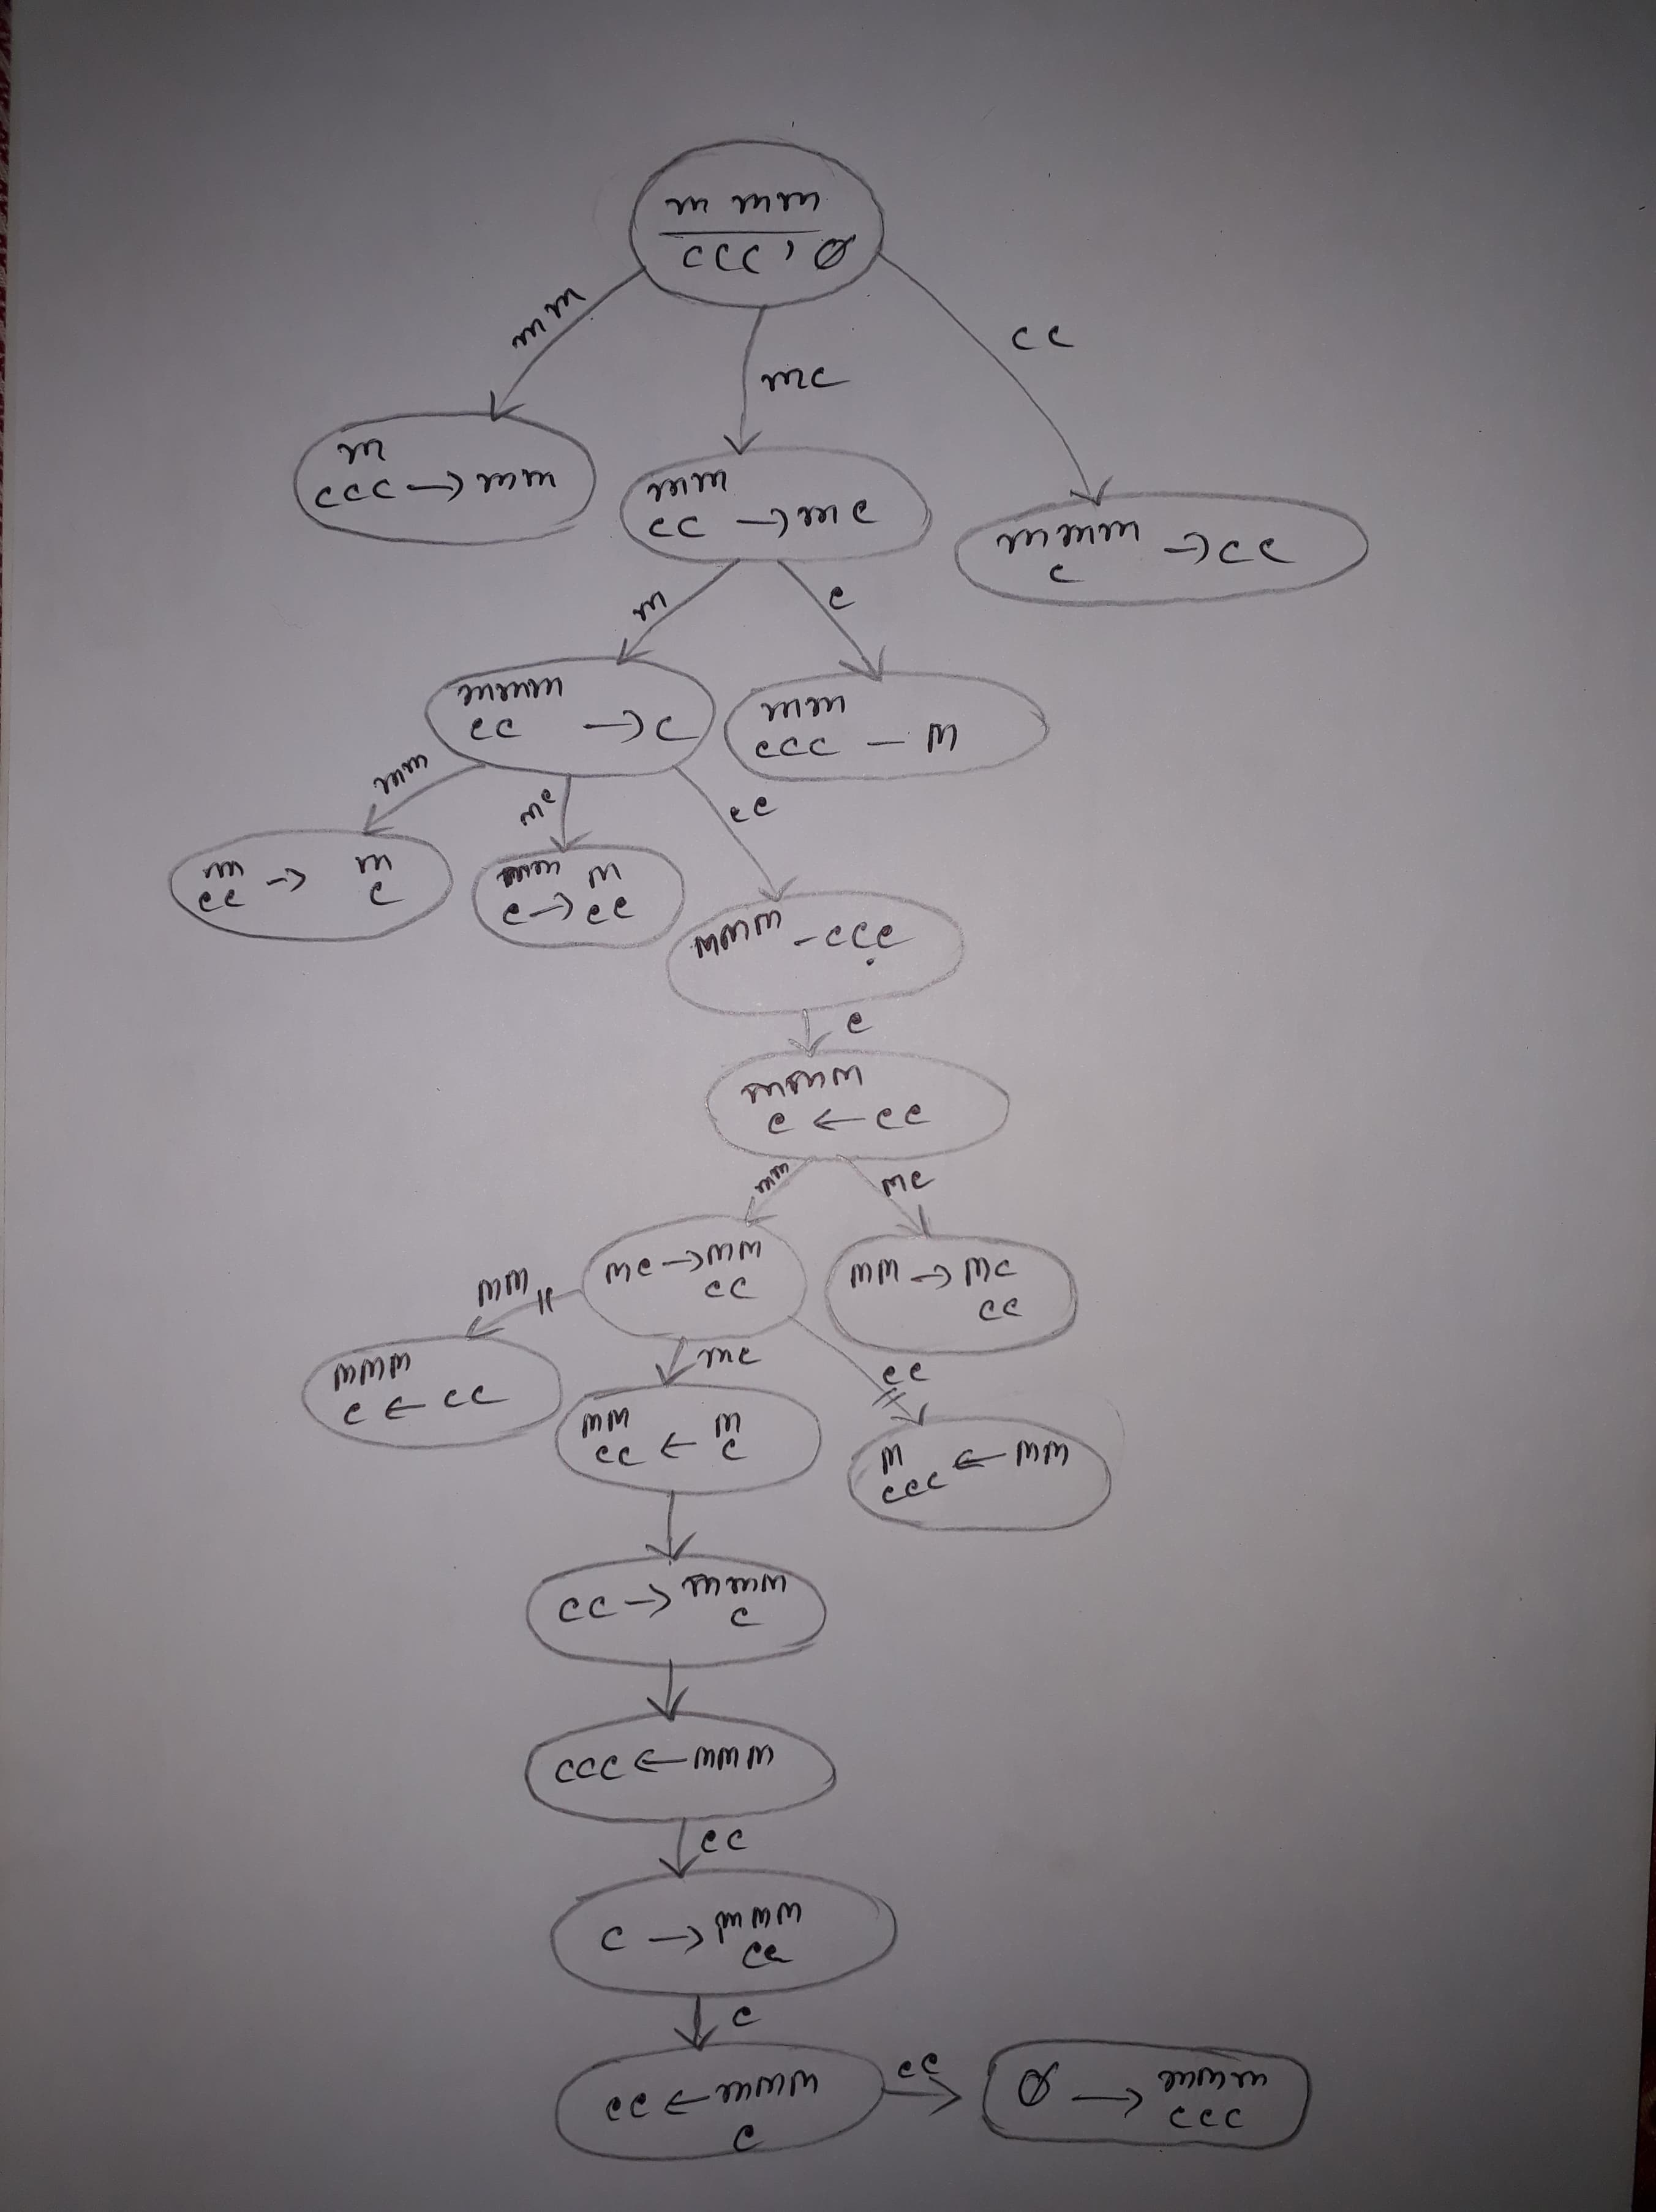 m mm
ccc, Ø
mm
mc
cc
m
ccc → mm
mm
cc → mc
mmm → cc
c
m
c
mmm
cc → c
mm
ccc — m
mm
mc
cc
m → m
cc c
mm m
c → cc
mmm - ccc
c
mmm
c ← cc
mm
mc
mc → mm
cc
mm → mc
cc
mm
mc
cc
mmm
c ← cc
mm m
cc ← c
m ← mm
ccc
cc → mmm
c
ccc ← mmm
cc
c → mmm
cc
c
cc ← mmm
c
cc
Ø → mmm
ccc